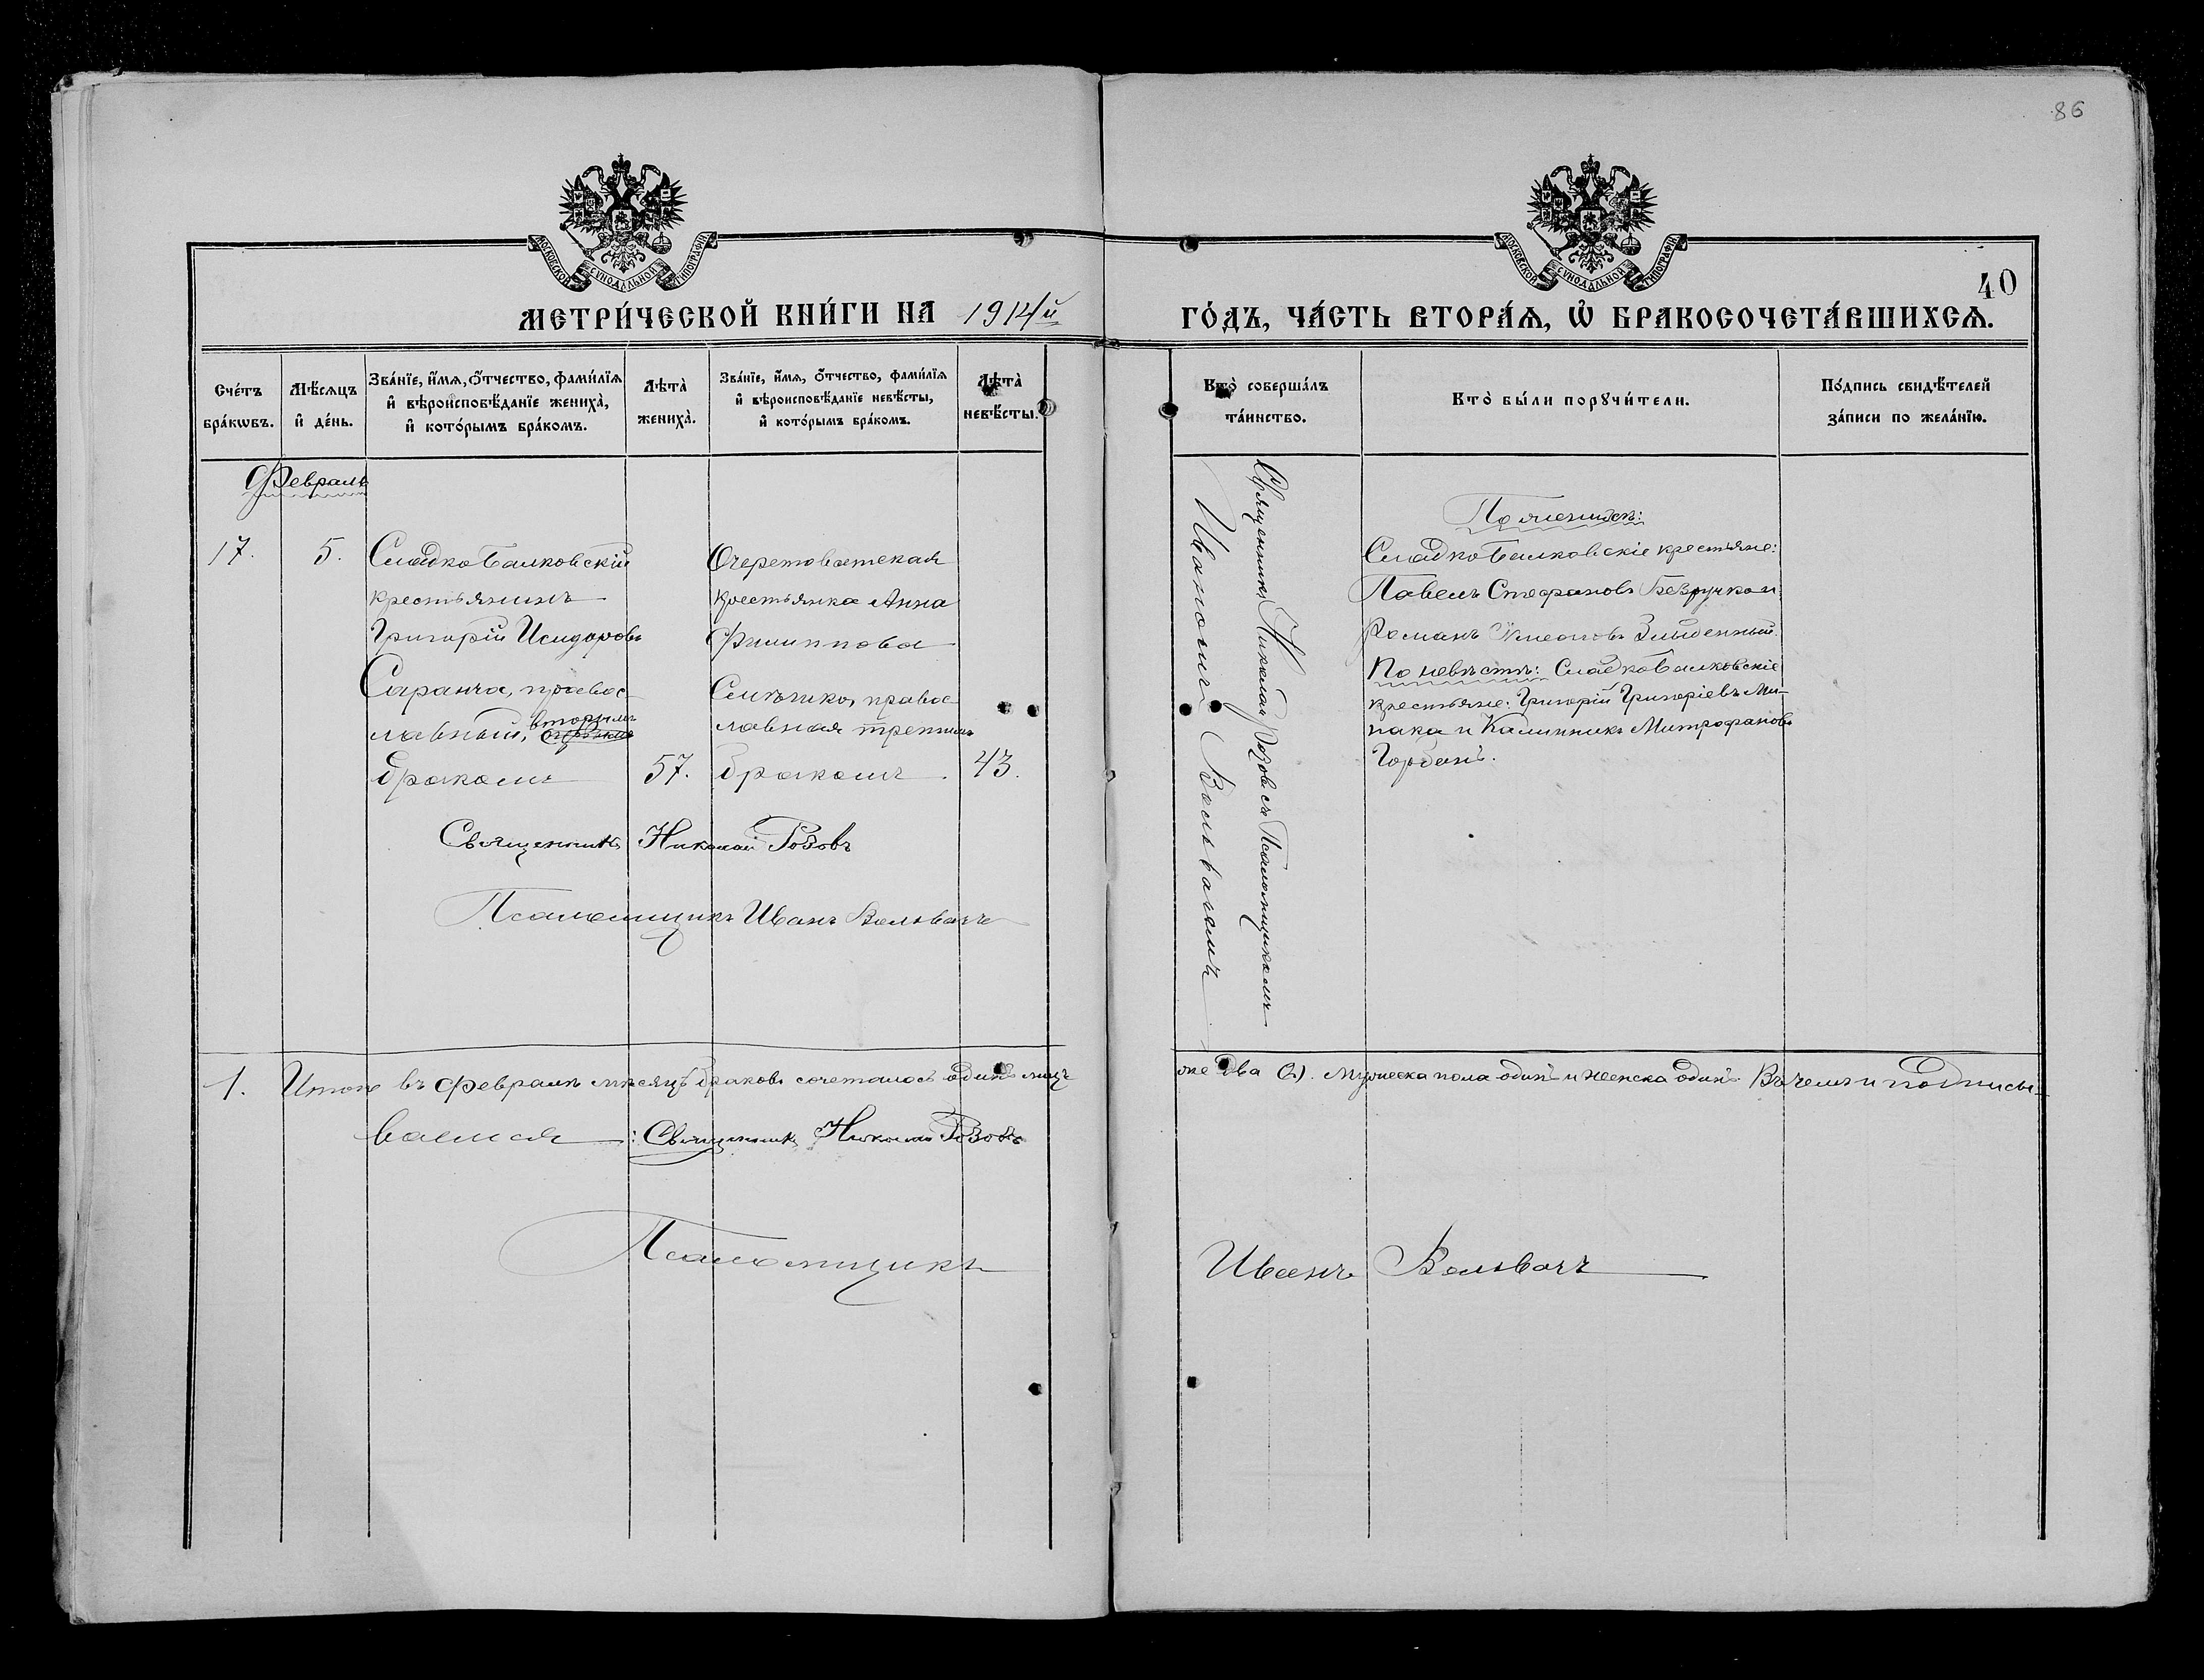 86
МОСКОВСКОЙ СУНОДАЛЬНОЙ ТИПОГРАФІИ
МОСКОВСКОЙ СУНОДАЛЬНОЙ ТИПОГРАФІИ
40
МЕТРИ́ЧЕСКОЙ КНИ́ГИ НА 1914й
ГО́ДЪ, ЧА́СТЬ ВТОРА́Ѧ, Ѽ БРАКОСОЧЕТА́ВШИХСѦ.
Сче́тъ
бра́кѡвъ.
Мѣ́сяцъ
и҆ де́нь.
Зва́нїе, и҆́мя, о҆́тчество, фами́лїя
и҆ вѣроисповѣ́данїе жениха̀,
и҆ кото́рымъ бра́комъ.
Лѣта̀
жениха̀.
Зва́нїе, и҆́мя, о҆́тчество, фами́лїя
и҆ вѣроисповѣ́данїе невѣ́сты,
и҆ кото́рымъ бра́комъ.
Лѣта̀
невѣ́сты.
Кто̀ соверша́лъ
та́инство.
Кто̀ бы́ли порꙋчи́тели.
По́дпись свидѣ́телей
за́писи по жела́нїю.
Февраль
17.
5.
СладкоБалковскій
крестьянинъ
Григорій Исидоровъ
Саранча, правос-
лавный, вторымъ
бракомъ
57.
Очеретоватская
крестьянка Анна
Филиппова
правос-
лавная третьимъ
бракомъ.
43.
Священникъ Николай Розовъ
Псаломщикъ Иванъ Вольвачъ
Священникъ Николай Розовъ съ Псаломщикомъ
Иваномъ Вольвачемъ
По женихѣ:
СладкоБалковскіе крестьяне:
Павелъ Стефановъ Безручко и
Романъ Злыденный.
По невѣстѣ: СладкоБалковскіе
крестьяне: Григорій Григоріевъ Ми-
нака и Калинникъ Митрофановъ
Горбань.
1.
Итого въ февралѣ мѣсяцѣ браковъ сочеталось одинъ, лицъ
же два (2). мужеска пола одинъ и женска одинъ. Въ чемъ и подписы-
ваемся: Священникъ Николай Розовъ
Псаломщикъ Иванъ Вольвачъ